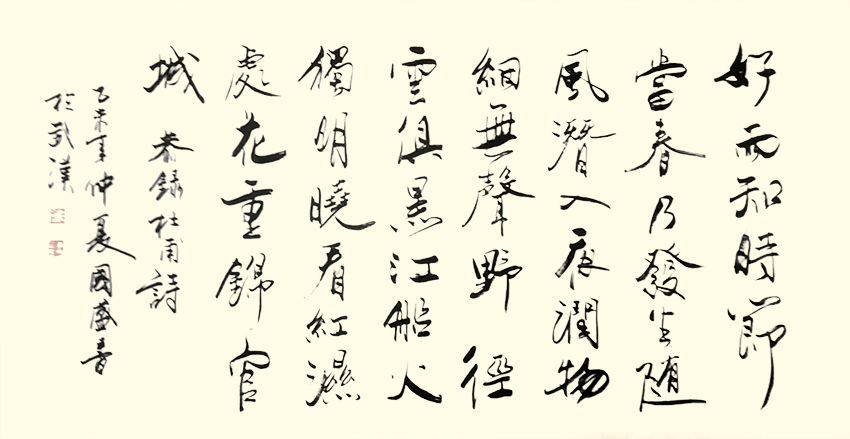 好雨知時節
當春乃發生随
風潛入夜潤物
細無聲野徑
雲俱黑江船火
獨明曉看紅濕
處花重錦官
城 恭録杜甫詩
乙未年仲夏國盛書
於武漢